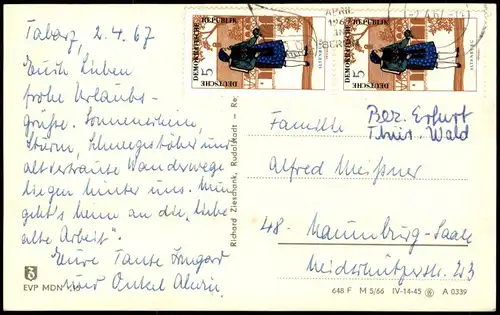 Tabarz, 2.4.67
Euch Lieben
frohe Urlaubs-
grüße. Sonnenschein,
Sturm, Schneegestöber und
altvertraute Wanderwege
liegen hinter uns. Nun
geht's heim an die „liebe
alte Arbeit".
Eure Tante Irmgard
und Onkel
EVP MDN
Richard Zieschank, Rudolstadt - Re
DEUTSCHE
DEMOKRATISCHE
REPUBLIK
5
ALTENBURG
APRIL
DEUTSCHE
DEMOKRATISCHE
REPUBLIK
5
ALTENBURG
Familie
Bez. Erfurt
Thür. Wald
Alfred Meißner
48- Naumburg-Saale
Neidschützerstr. 23
648 F M 5/66 IV-14-45 A 0339